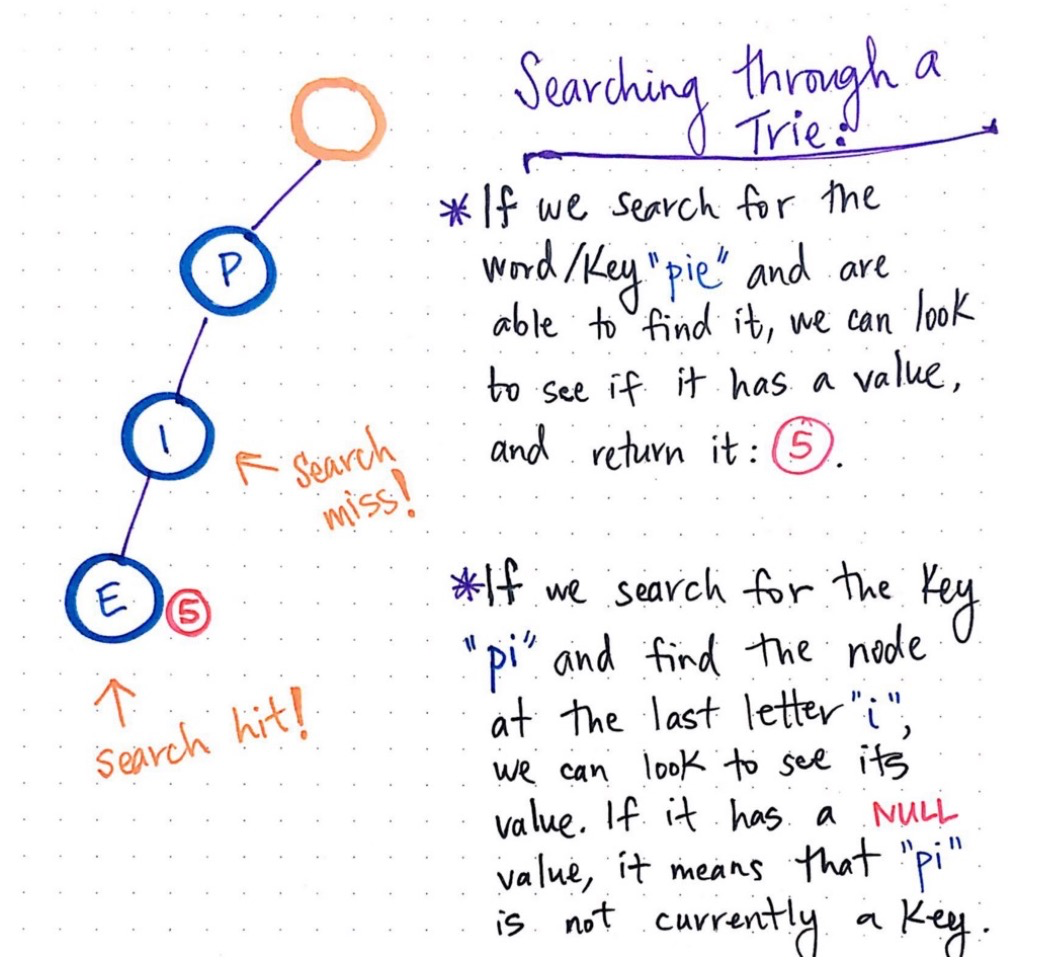 Searching through a
Trie:
*If we search for the
word/Key "pie" and are
able to find it, we can look
to see if it has a value,
and return it: 5.
*If we search for the Key
"pi" and find the node
at the last letter "i",
we can look to see its
value. If it has a NULL
value, it means that "pi"
is not currently a Key.
P
I
search
miss!
E 5
search hit!